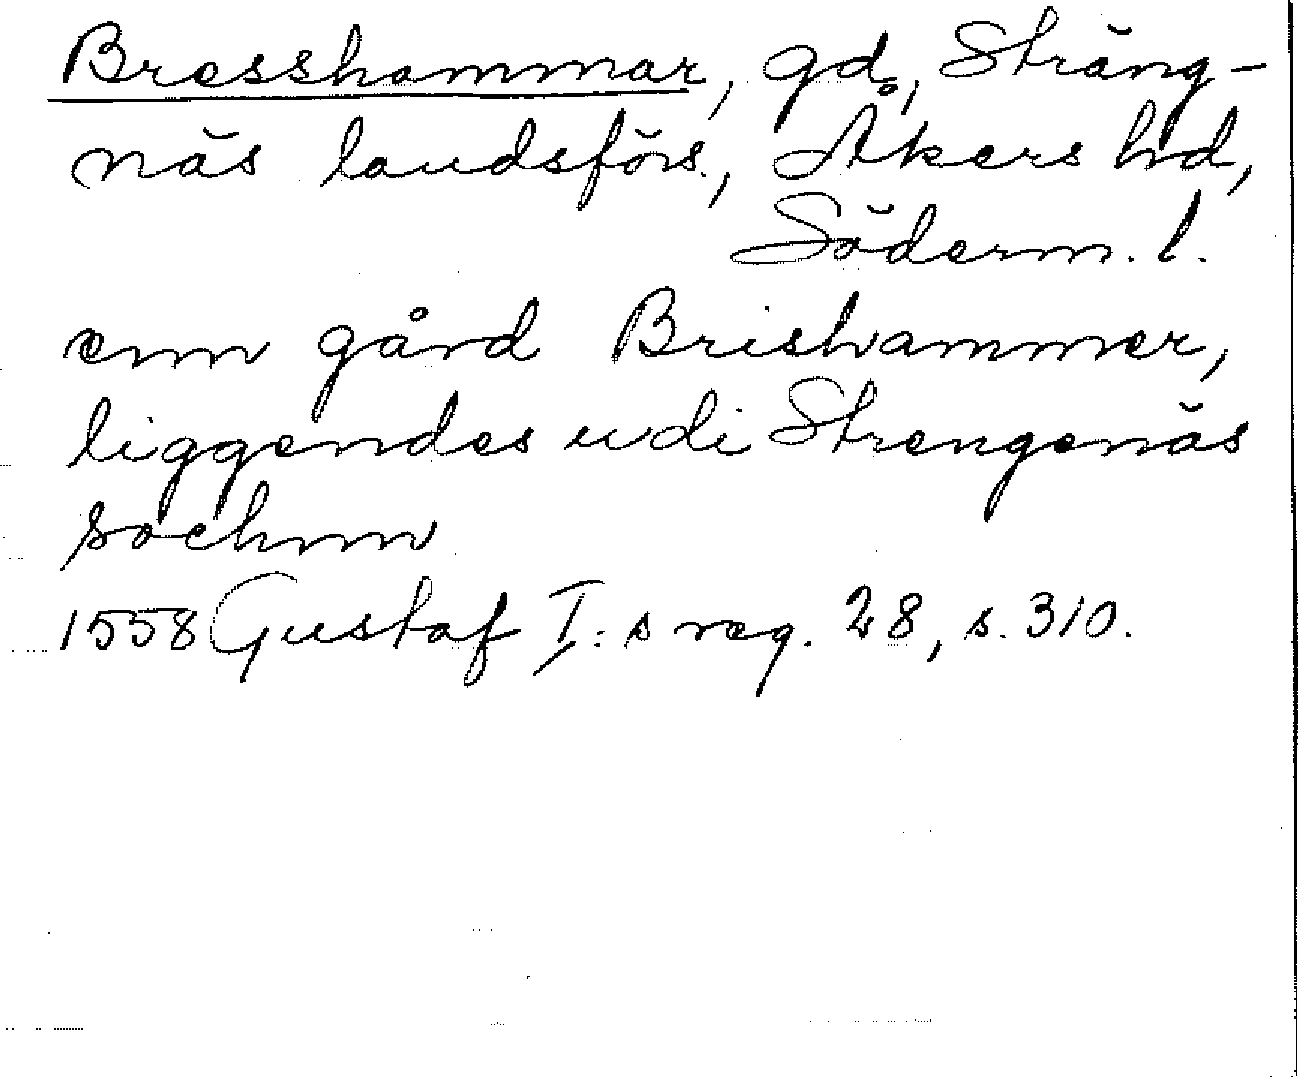 Bresshammar, gd, Sträng-
näs landsförs., Åkers hd,
Söderm. l.
enn gård Brishammer,
liggendes udi Strengenäs
sochnn
1558 Gustaf I:s reg. 28, s. 310.